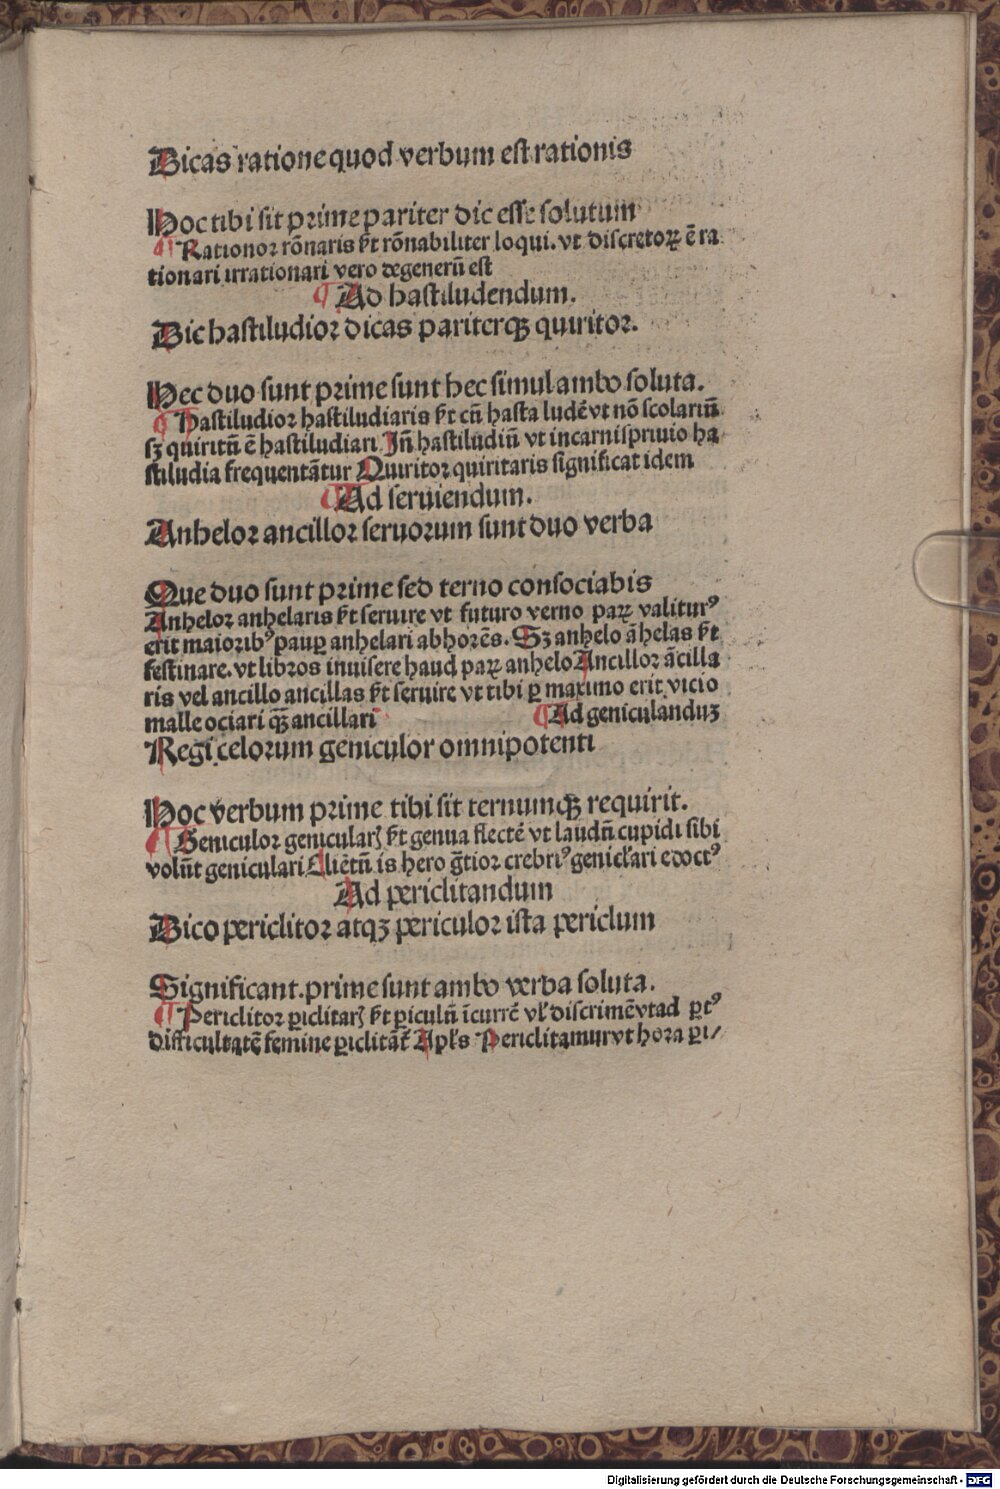 Dicas ratione quod verbum est rationis
Hoc tibi sit prime pariter dic esse solutum
¶ Rationor rōnaris ē̄t rōnabiliter loqui. vt discretoꝝ ē ra
tionari irrationari vero degenerū est
¶ Ad hastiludendum.
Dic hastiludior dicas pariterqꝫ quiritor.
Hec duo sunt prime sunt hec simul ambo soluta.
¶ Hastiludior hastiludiaris ē̄t cū hasta ludē vt nō scolariū
sꝫ quiritū ē hastiludiari Jn̄ hastiludiū vt incarnispriuio ha
stiludia frequentātur Quiritor quiritaris significat idem
¶ Ad seruiendum.
Anhelor ancillor seruorum sunt duo verba
Que duo sunt prime sed terno consociabis
Anhelor anhelaris ē̄t seruire vt futuro verno paꝝ valiturꝰ
erit maioribꝰ pauꝑ anhelari abhorēs. Sꝫ anhelo āhelas ē̄t
festinare. vt libros inuisere haud paꝝ anhelo Ancillor ācilla
ris vel ancillo ancillas ē̄t seruire vt tibi ꝑ maximo erit vicio
malle ociari qꝫ̄ ancillari
¶ Ad geniculanduꝫ
Regi celorum geniculor omnipotenti
Hoc verbum prime tibi sit ternumqꝫ requirit.
¶ Geniculor genicularꝭ ē̄t genua flectē vt laudū cupidi sibi
volūt geniculari Cliētū is hero ḡtior crebriꝰ genicl̄ari edoctꝰ
Ad periclitandum
Dico periclitor atqꝫ periculor ista periclum
Significant. prime sunt ambo verba soluta.
¶ Periclitor ꝑiclitarꝭ ē̄t ꝑiculū īcurrē vl̓ discrimē vt ad ꝑtꝰ
difficultatē femine ꝑiclitāt̄ Apl̄s Periclitamur vt hora ꝑi/
Digitalisierung gefördert durch die Deutsche Forschungsgemeinschaft - DFG